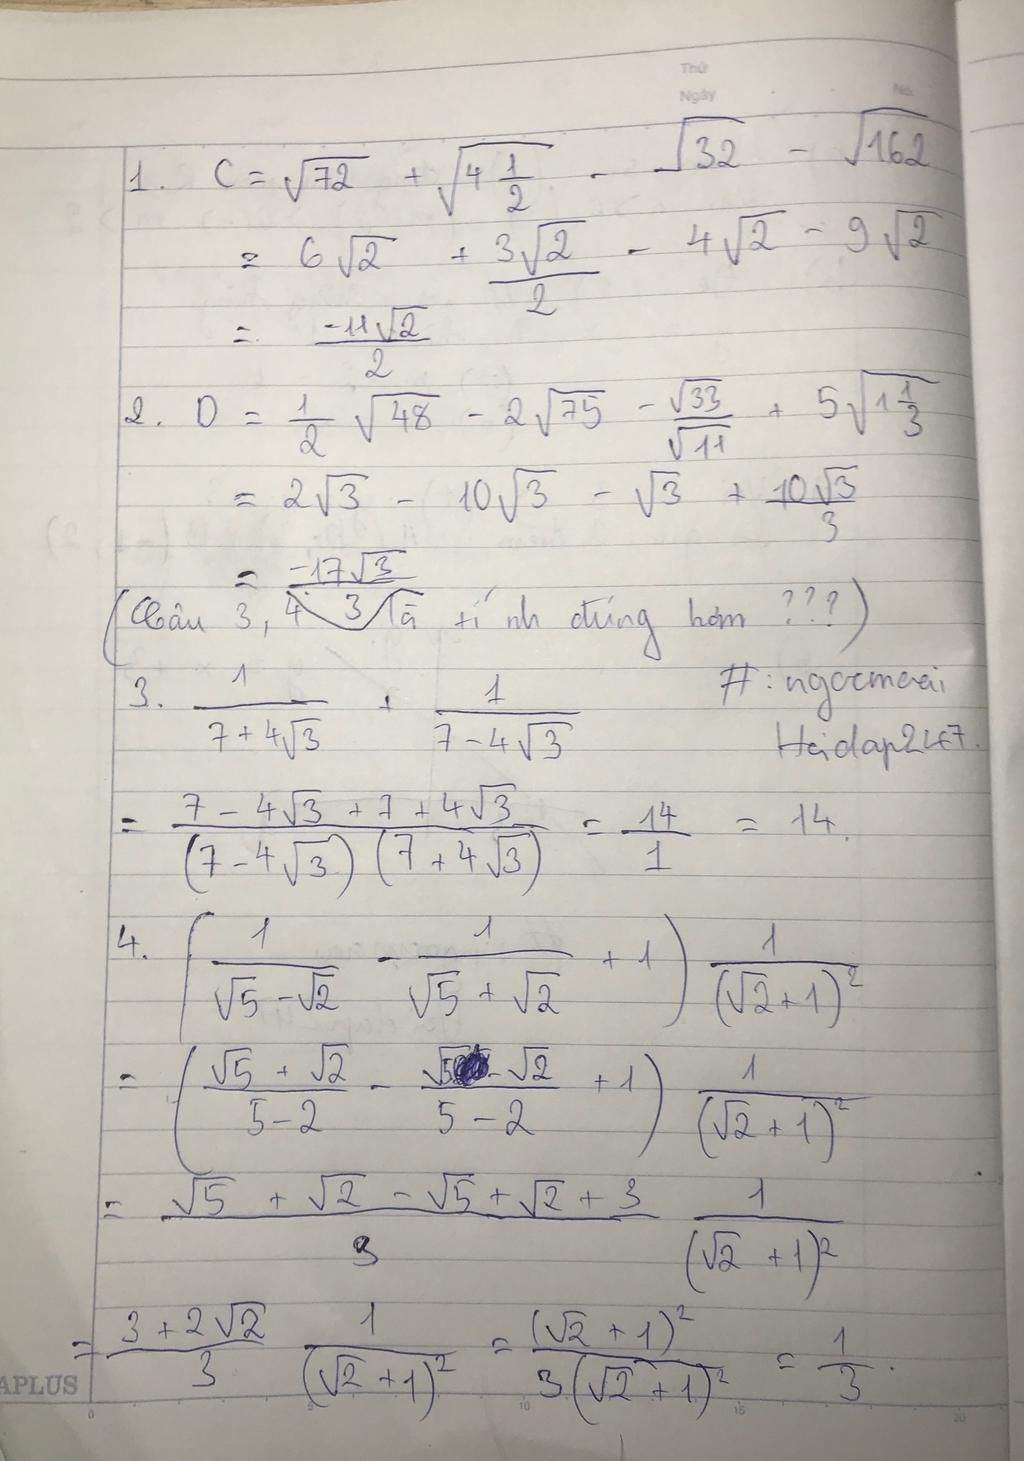 Thứ
Ngày No.
1. C = √72 + √(4 1/2) - √32 - √162
= 6√2 + 3√2/2 - 4√2 - 9√2
= -11√2/2
2. D = 1/2 √48 - 2√75 - √33/√11 + 5√(1 1/3)
= 2√3 - 10√3 - √3 + 10√3/3
= -17√3/3
(Câu 3, 4 là tính đúng hơm ???)
3. 1/(7+4√3) + 1/(7-4√3) #: ngocmaai
Hoidap247.
= (7 - 4√3 + 7 + 4√3)/((7-4√3)(7+4√3)) = 14/1 = 14.
4. (1/(√5-√2) - 1/(√5+√2) + 1) 1/(√2+1)²
= ((√5+√2)/(5-2) - (√5-√2)/(5-2) + 1) 1/(√2+1)²
= (√5 + √2 - √5 + √2 + 3)/3 1/(√2+1)²
= (3+2√2)/3 1/(√2+1)² = (√2+1)²/(3(√2+1)²) = 1/3.
APLUS
0 5 10 15 20